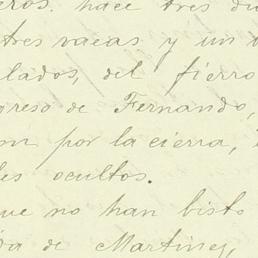 eros. hace tres di
tres vacas y un t
lados, del fierro
greso de Fernando,
on por la cierra,
les ocultos.
ue no han bisto
da de Martinez,